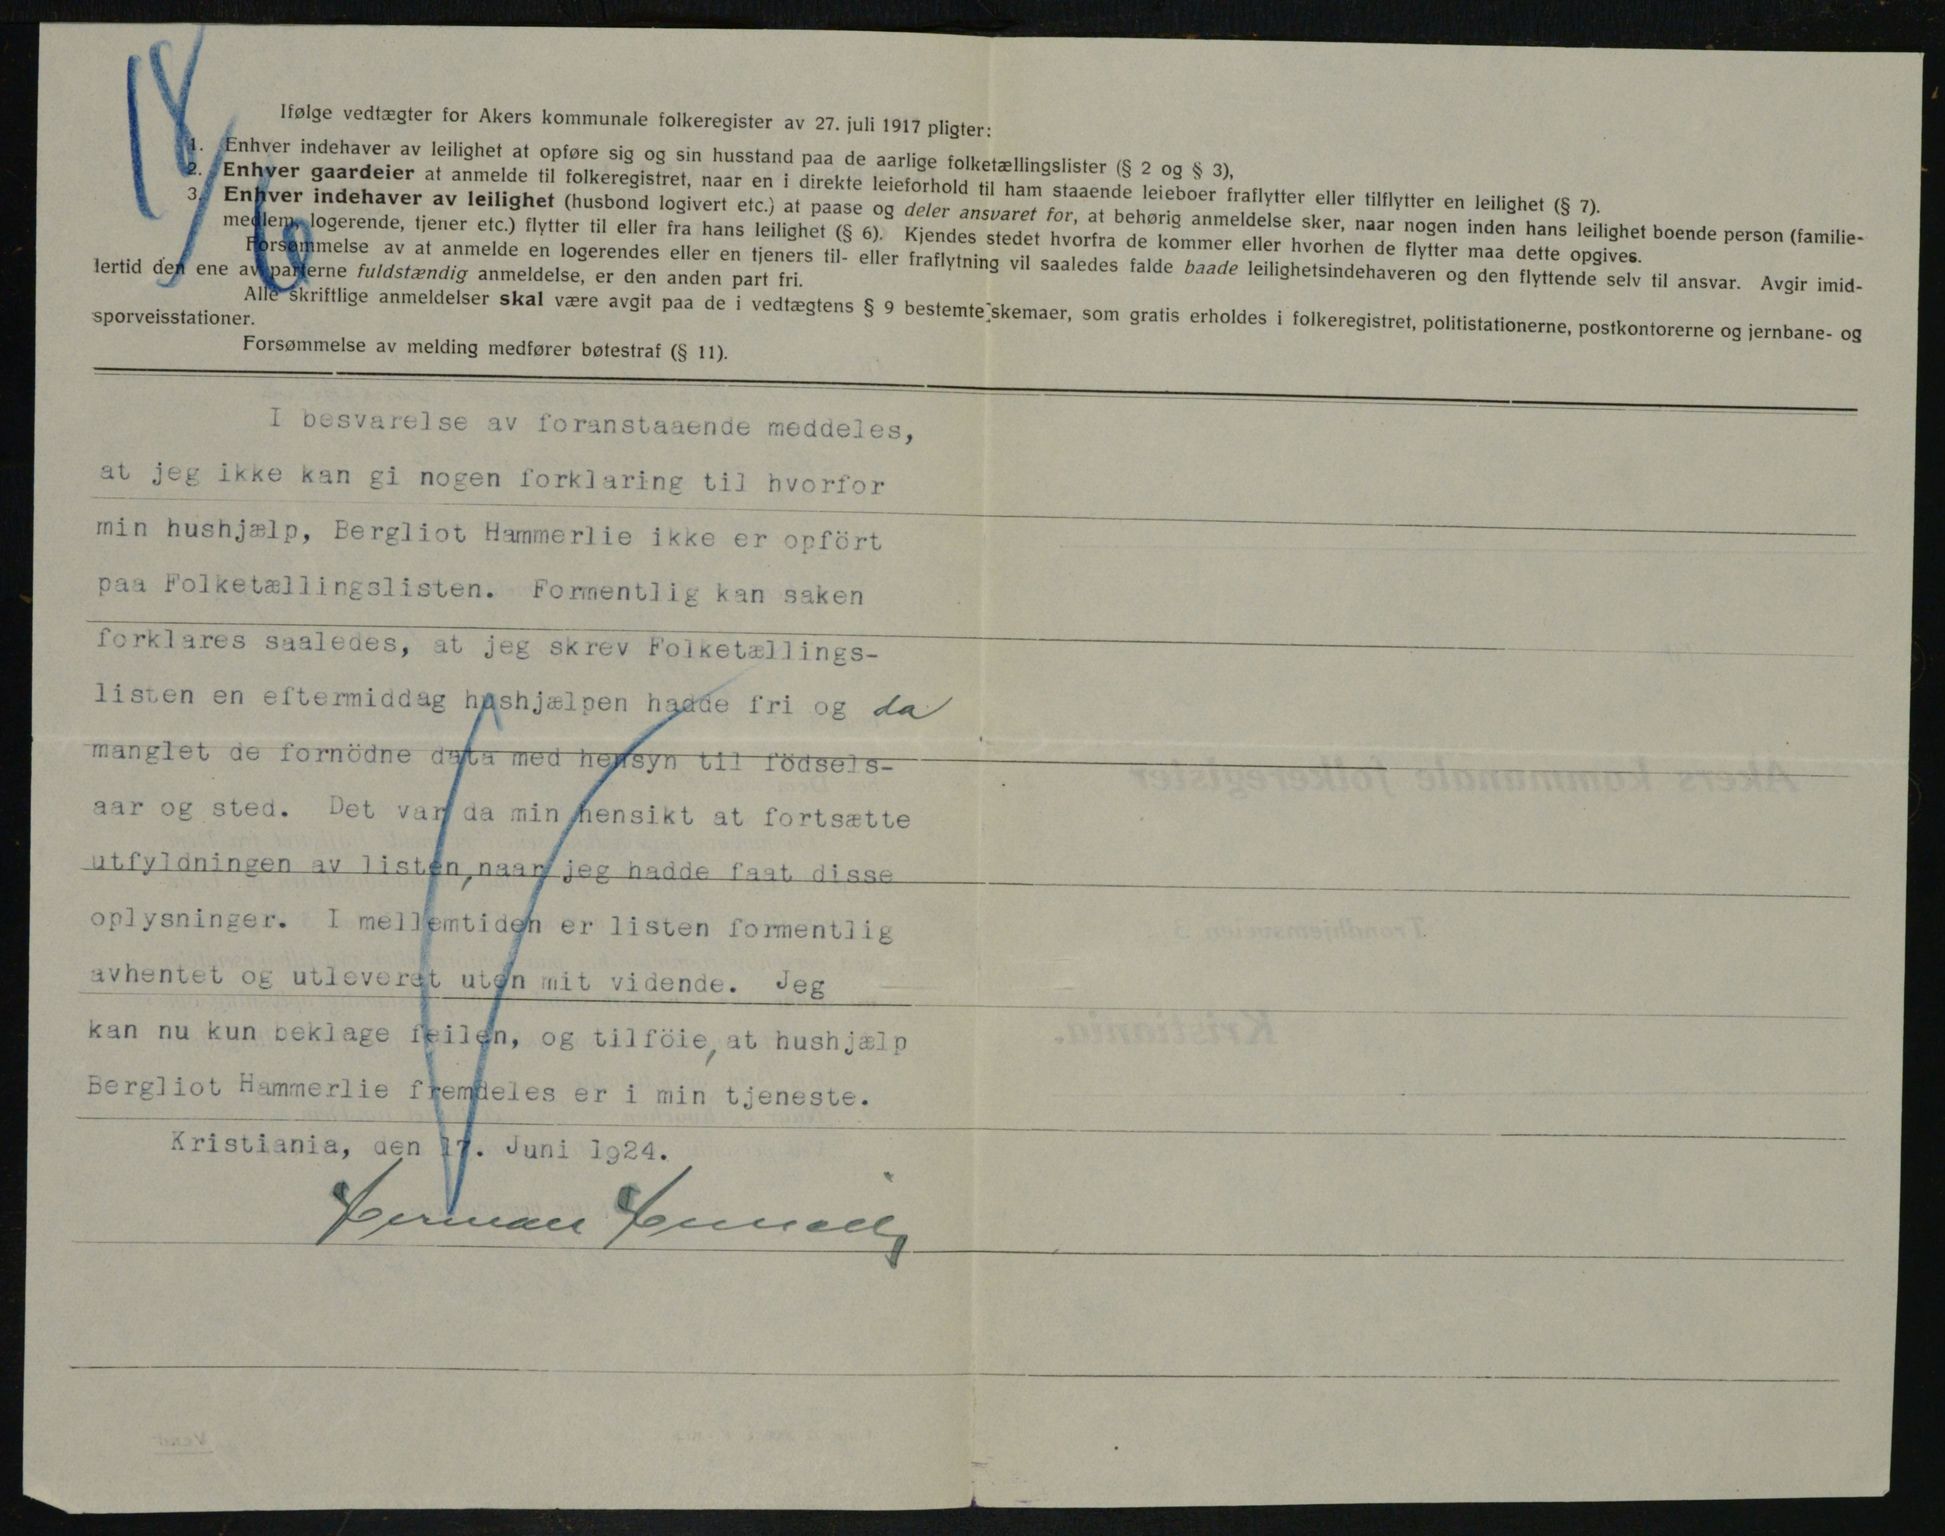 18/6
Ifølge vedtægter for Akers kommunale folkeregister av 27. juli 1917 pligter:
1. Enhver indehaver av leilighet at opføre sig og sin husstand paa de aarlige folketællingslister (§ 2 og § 3),
2. Enhver gaardeier at anmelde til folkeregistret, naar en i direkte leieforhold til ham staaende leieboer fraflytter eller tilflytter en leilighet (§ 7).
3. Enhver indehaver av leilighet (husbond logivert etc.) at paase og deler ansvaret for, at behørig anmeldelse sker, naar nogen inden hans leilighet boende person (familie-
medlem, logerende, tjener etc.) flytter til eller fra hans leilighet (§ 6). Kjendes stedet hvorfra de kommer eller hvorhen de flytter maa dette opgives.
Forsømmelse av at anmelde en logerendes eller en tjeners til- eller fraflytning vil saaledes falde baade leilighetsindehaveren og den flyttende selv til ansvar. Avgir imid-
lertid den ene av parterne fuldstændig anmeldelse, er den anden part fri.
Alle skriftlige anmeldelser skal være avgit paa de i vedtægtens § 9 bestemte skemaer, som gratis erholdes i folkeregistret, politistationerne, postkontorerne og jernbane- og
sporveisstationer.
Forsømmelse av melding medfører bøtestraf (§ 11).
I besvarelse av foranstaaende meddeles,
at jeg ikke kan gi nogen forklaring til hvorfor
min hushjælp, Bergliot Hammerlie ikke er opfört
paa Folketællingslisten. Formentlig kan saken
forklares saaledes, at jeg skrev Folketællings-
listen en eftermiddag hushjælpen hadde fri og da
manglet de fornödne data med hensyn til födsels-
aar og sted. Det var da min hensikt at fortsætte
utfyldningen av listen, naar jeg hadde faat disse
oplysninger. I mellemtiden er listen formentlig
avhentet og utleveret uten mit vidende. Jeg
kan nu kun beklage feilen, og tilföie, at hushjælp
Bergliot Hammerlie fremdeles er i min tjeneste.
Kristiania, den 17. Juni 1924.
Herman
Akers kommunale folkeregister
Trondhjemsveien 5
Kristiania.
Vend